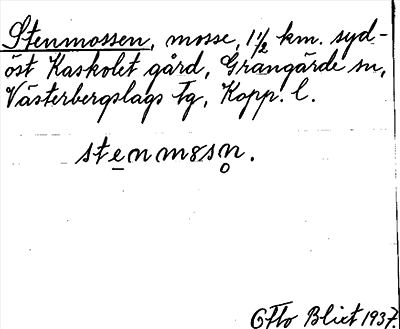 Stenmossen, mosse, 1½ km. syd-
öst Kaskolet gård, Grangärde sn,
Västerbergslags Tg, Kopp. l.
stenmosn.
Otto Blixt 1937.